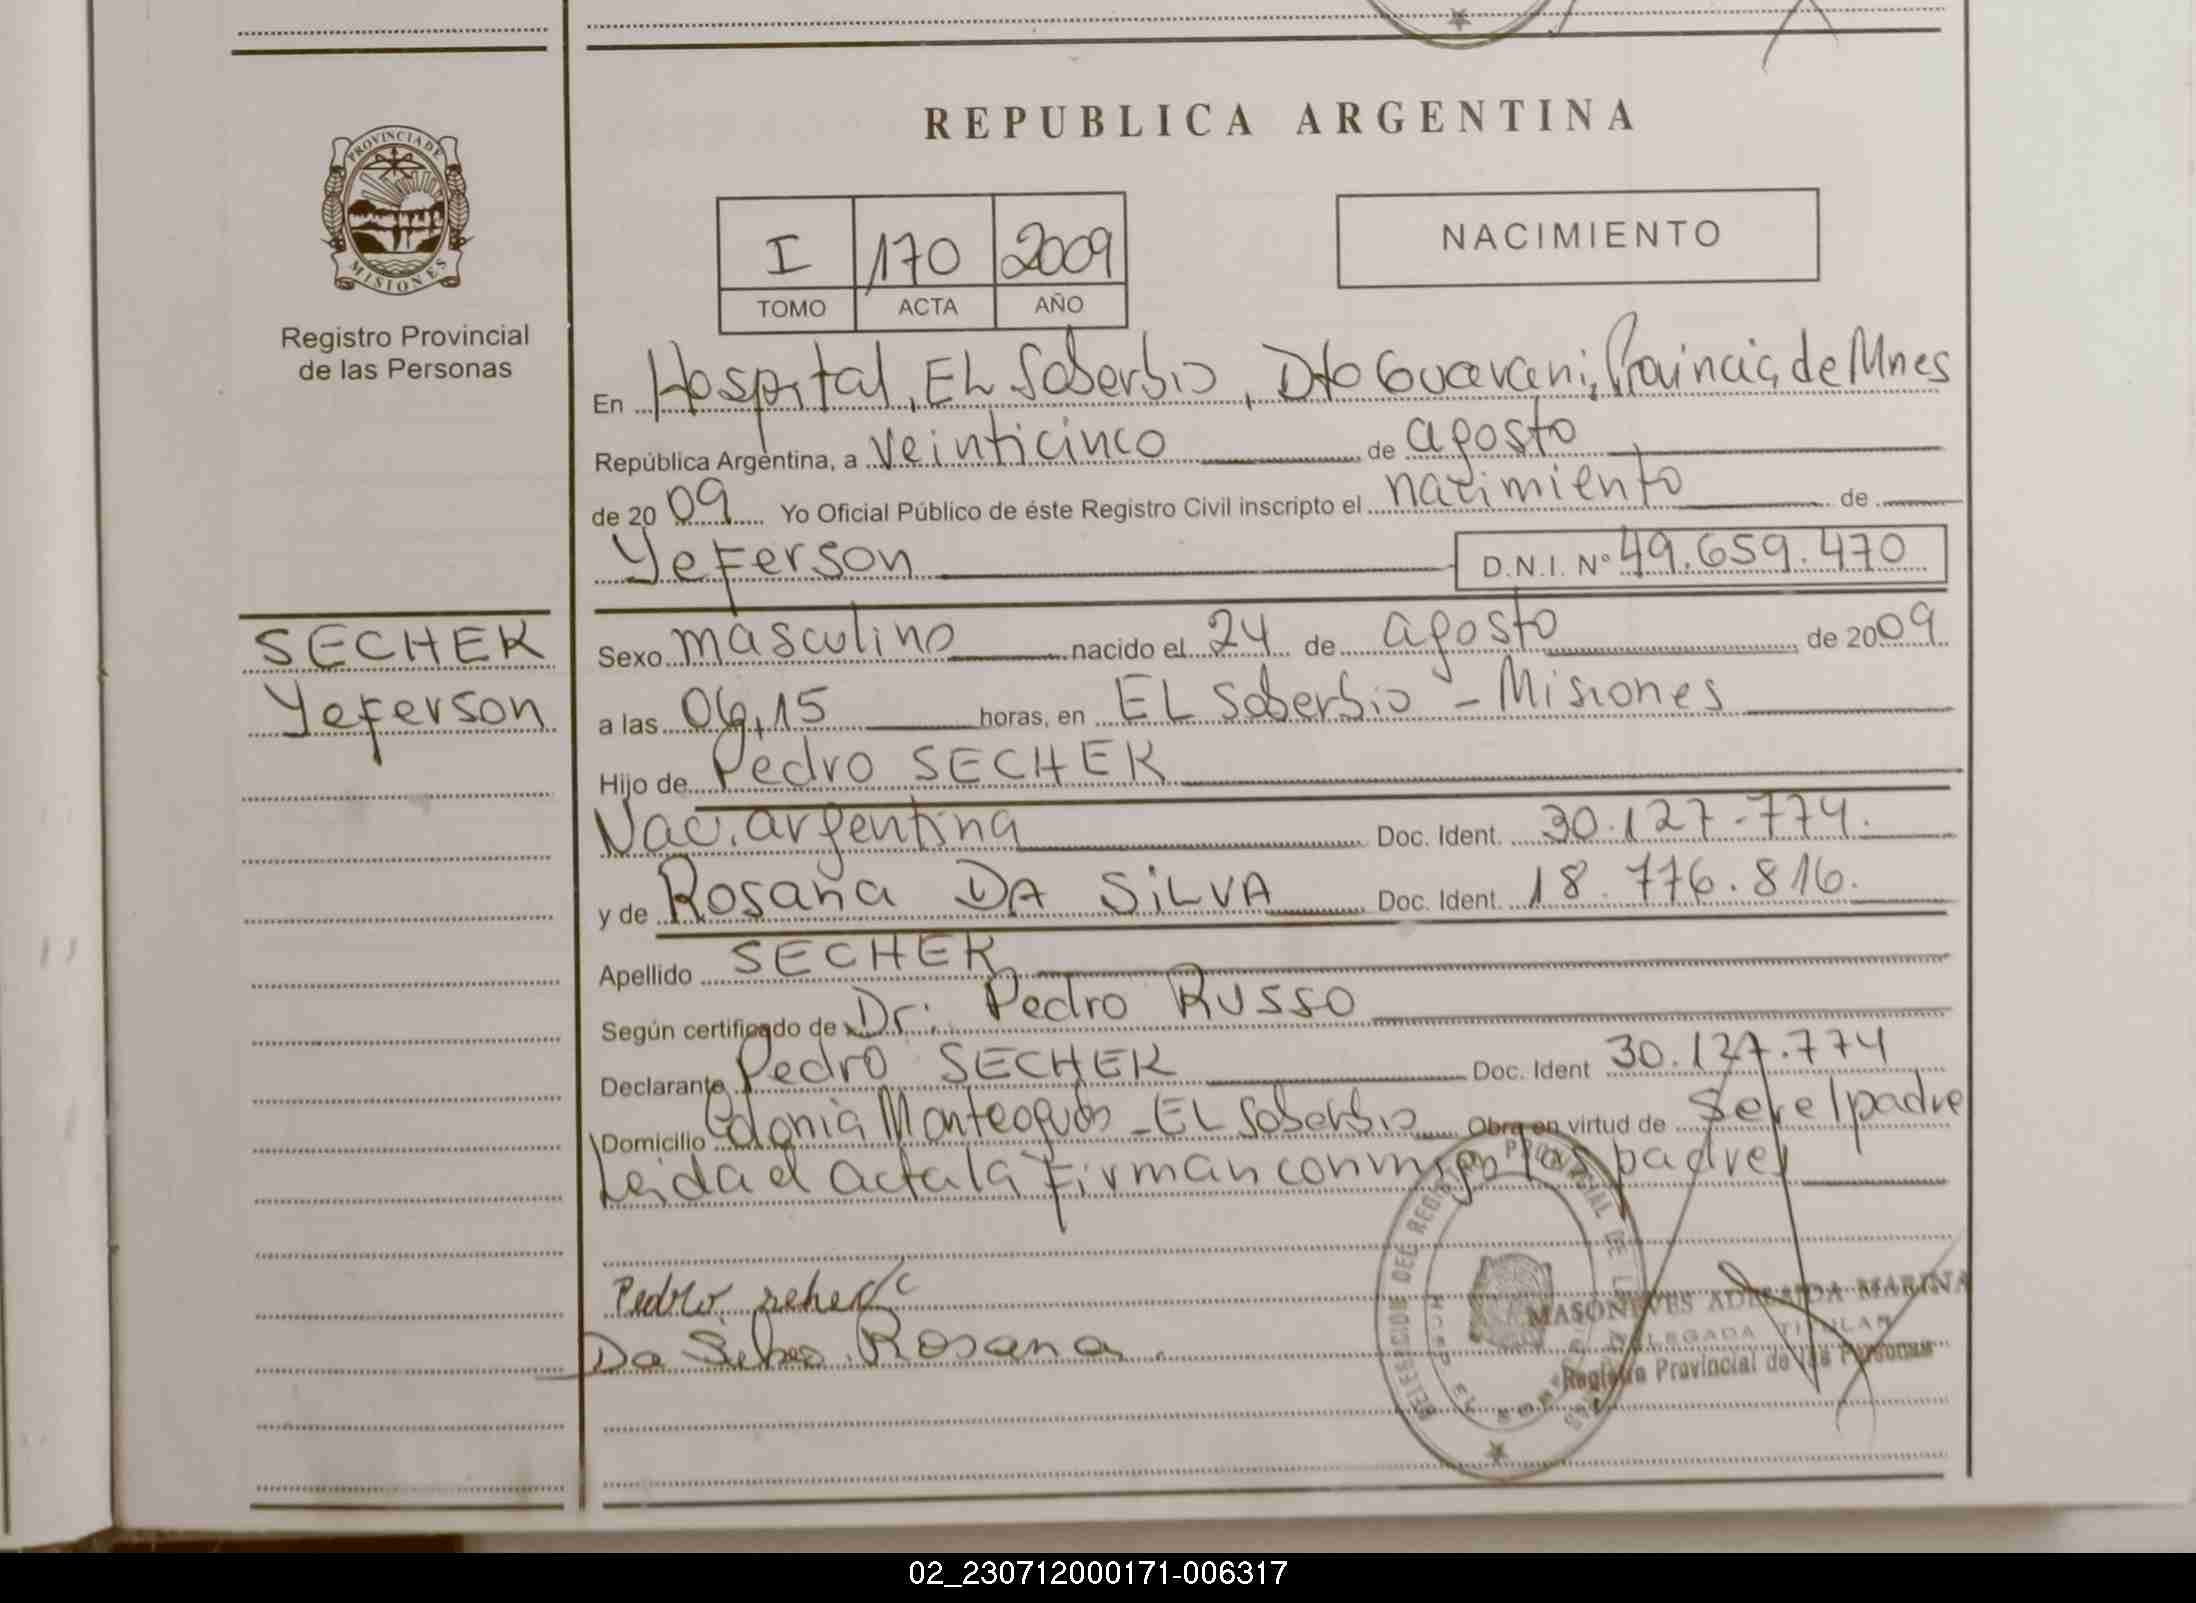 REPUBLICA ARGENTINA
PROVINCIA DE
MISIONES
Registro Provincial
de las Personas
I 170 2009
TOMO ACTA AÑO
NACIMIENTO
En Hospital, EL Soberbio, Dto Guarani, Provincia de Mnes
República Argentina, a veinticinco de agosto
de 2009 Yo Oficial Público de éste Registro Civil inscripto el nacimiento de
Yeferson D.N.I. Nº 49.659.470
SECHEK
Yeferson
Sexo masculino nacido el 24 de agosto de 2009
a las 06,15 horas, en EL Soberbio - Misiones
Hijo de Pedro SECHEK
Nac. argentina Doc. Ident. 30.127.774.
y de Rosana DA SiLVA Doc. Ident. 18.776.816.
Apellido SECHEK
Según certificado de Dr. Pedro RUSSO
Declarante Pedro SECHEK Doc. Ident 30.127.774
Domicilio Colonia Monteagudo - EL Soberbio Obra en virtud de ser el padre
Leida el acta la firman conmigo los padres
Pedro
Da Rosana
REGISTRO PROVINCIAL DE LAS
MASONEVES ADELAIDA MARINA
DELEGADA TITULAR
Registro Provincial de las Personas
02_230712000171-006317